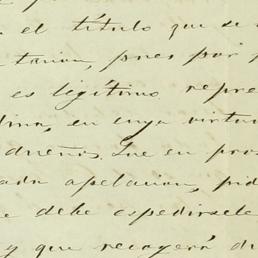 el título que se
tarian, pues por
es legítimo repre
dina, en cuya virtu
dueños. Que en pro
ada apelacion, pid
e debe espedirsele
y que recayera d